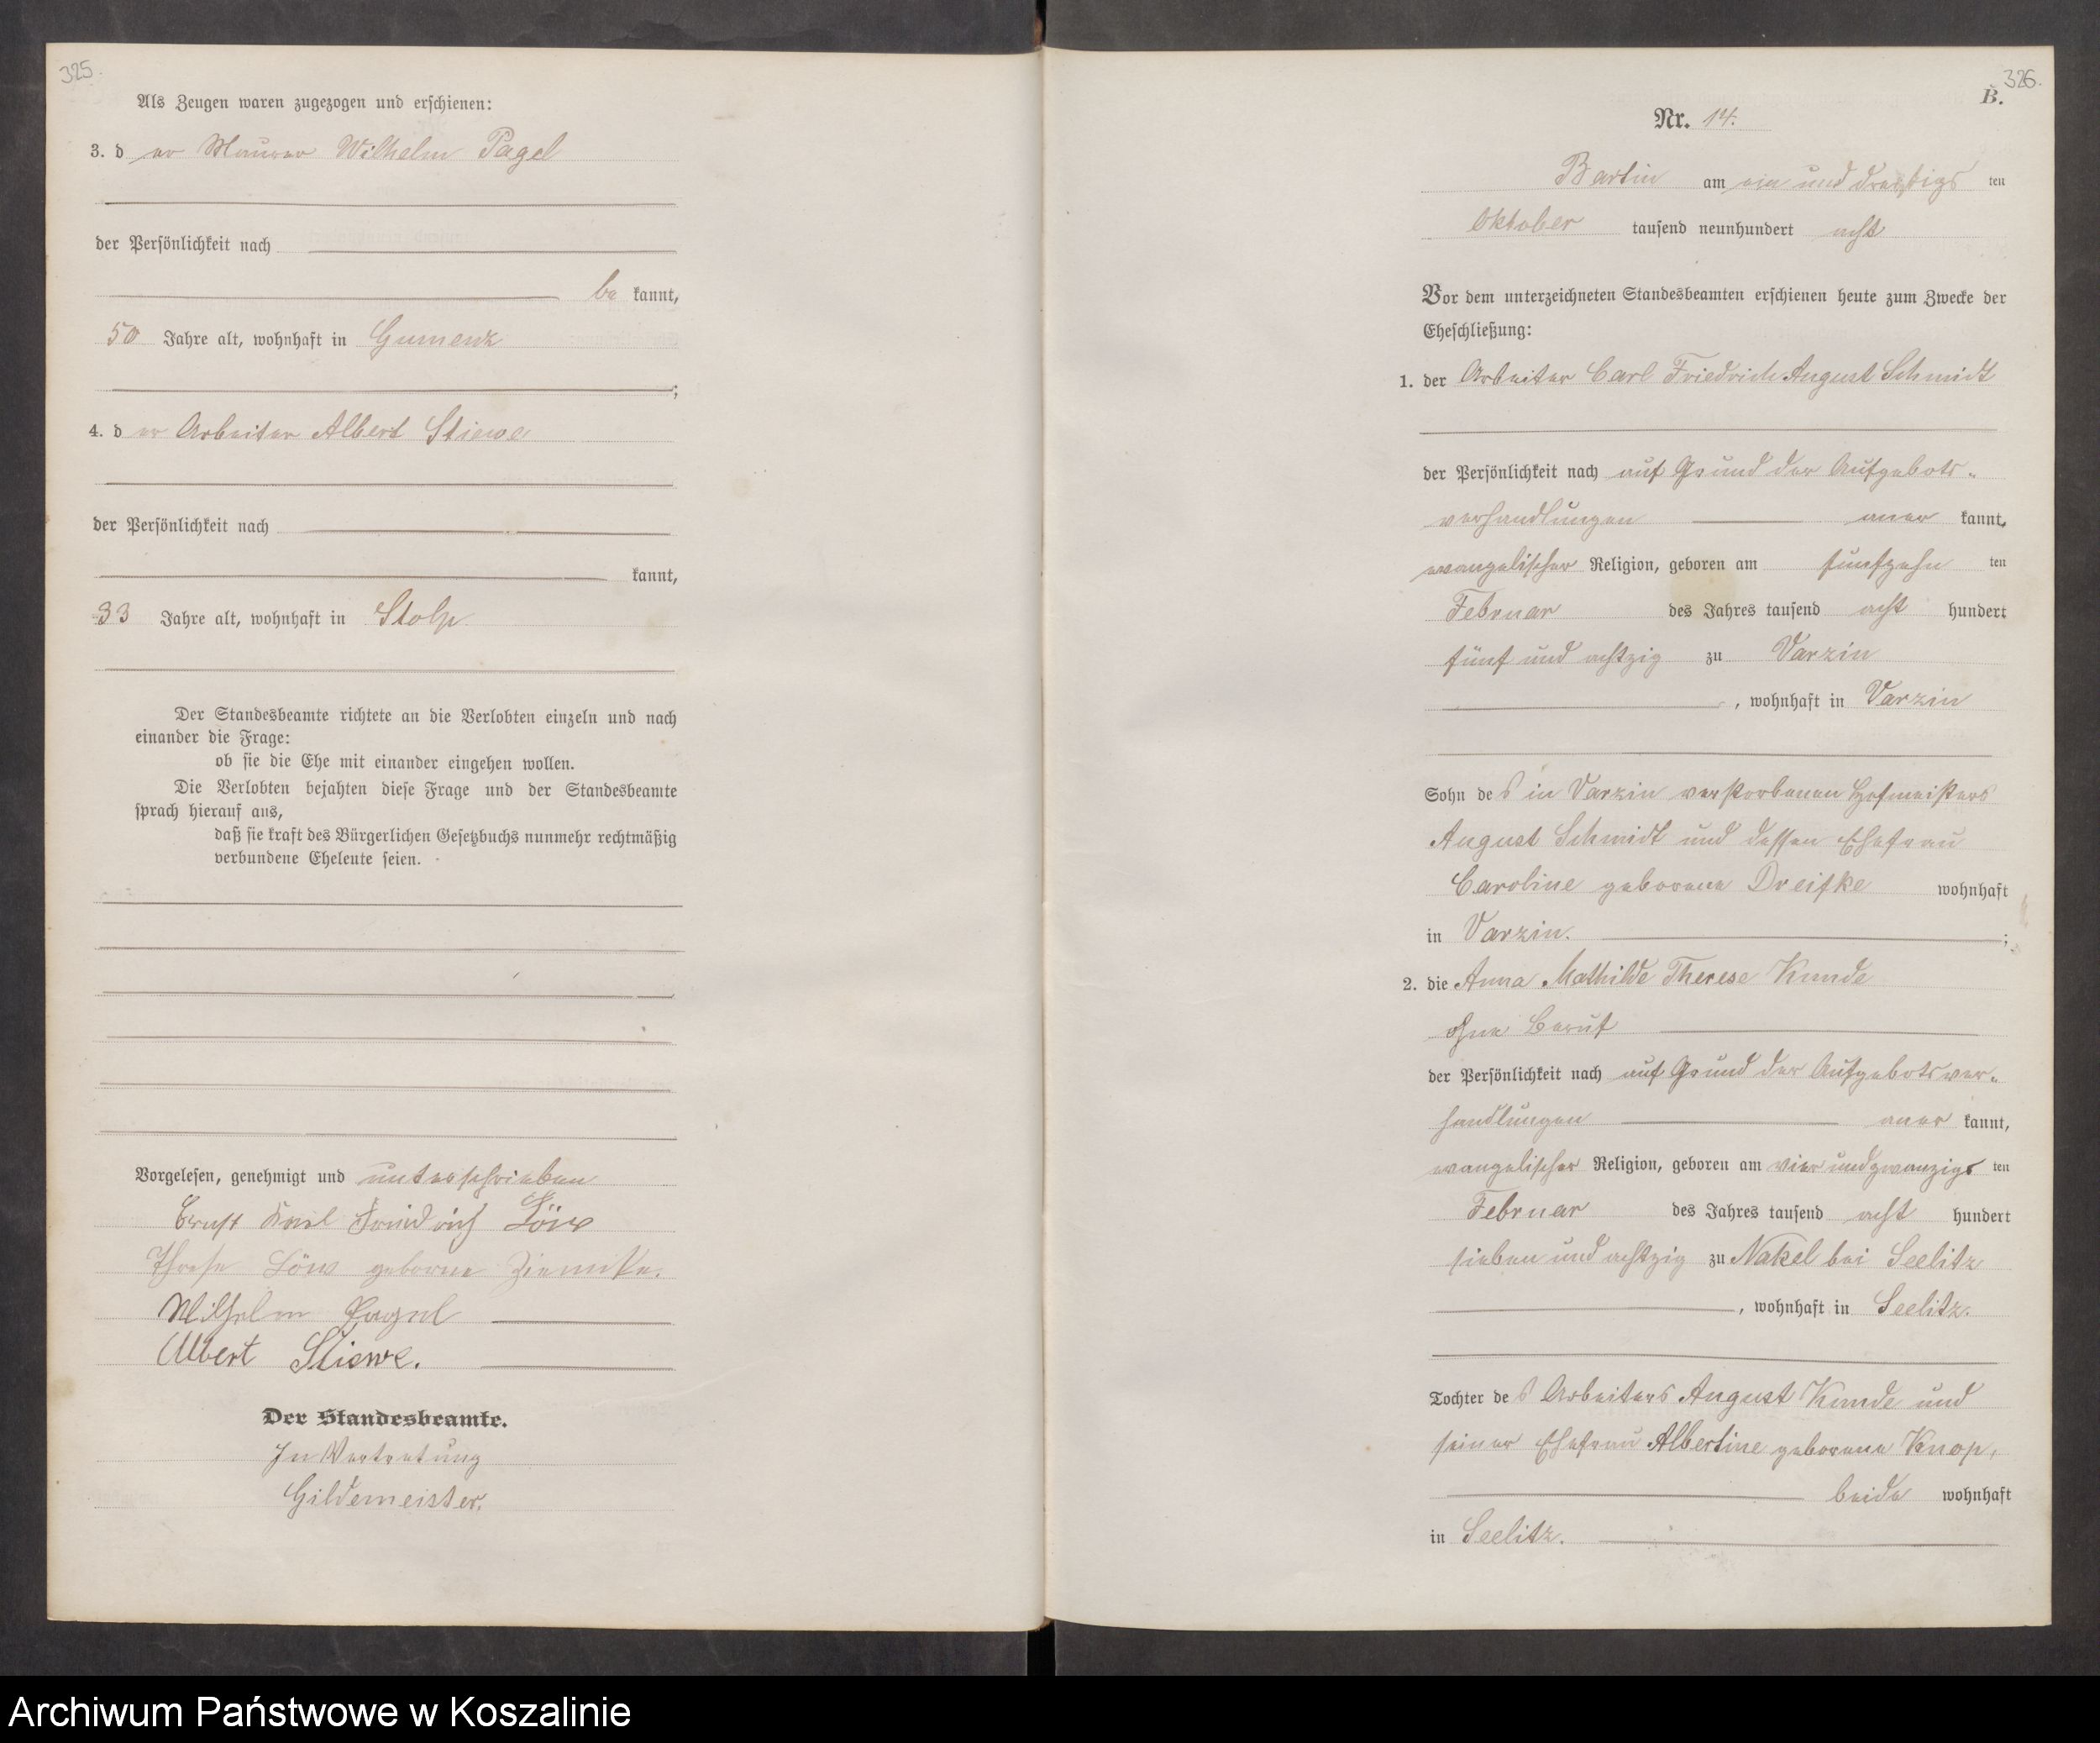 325.
Als Zeugen waren zugezogen und erschienen:
3. d er Maurer Wilhelm Pagel
der Persönlichkeit nach
be kannt,
50 Jahre alt, wohnhaft in Gumenz
;
4. d er Arbeiter Albert Stiewe
der Persönlichkeit nach
kannt,
33 Jahre alt, wohnhaft in Stolp
Der Standesbeamte richtete an die Verlobten einzeln und nach
einander die Frage:
ob sie die Ehe mit einander eingehen wollen.
Die Verlobten bejahten diese Frage und der Standesbeamte
sprach hierauf aus,
daß sie kraft des Bürgerlichen Gesetzbuchs nunmehr rechtmäßig
verbundene Eheleute seien.
Vorgelesen, genehmigt und unterschrieben
Ernst Karl Friedrich Löw
Löw geborne Ziemke.
Wilhelm Pagel
Albert Stiewe.
Der Standesbeamte.
In Vertretung
Gildemeister.
326.
B.
Nr. 14.
Bartin am ein und dreißigs ten
Oktober tausend neunhundert acht
Vor dem unterzeichneten Standesbeamten erschienen heute zum Zwecke der
Eheschließung:
1. der Arbeiter Carl Friedrich August Schmidt
der Persönlichkeit nach auf Grund der Aufgebots-
verhandlungen aner kannt,
evangelischer Religion, geboren am fünfzehn ten
Februar des Jahres tausend acht hundert
fünf und achtzig zu Varzin
, wohnhaft in Varzin
Sohn des in Varzin verstorbenen Hofmeisters
August Schmidt und dessen Ehefrau
Caroline geborene Dreifke wohnhaft
in Varzin. ;
2. die Anna Mathilde Therese Kunde
ohne Beruf
der Persönlichkeit nach auf Grund der Aufgebotsver-
handlungen aner kannt,
evangelischer Religion, geboren am vier und zwanzigs ten
Februar des Jahres tausend acht hundert
sieben und achtzig zu Nakel bei Seelitz
, wohnhaft in Seelitz.
Tochter des Arbeiters August Kunde und
seiner Ehefrau Albertine geborene Knop,
beide wohnhaft
in Seelitz.
Archiwum Państwowe w Koszalinie